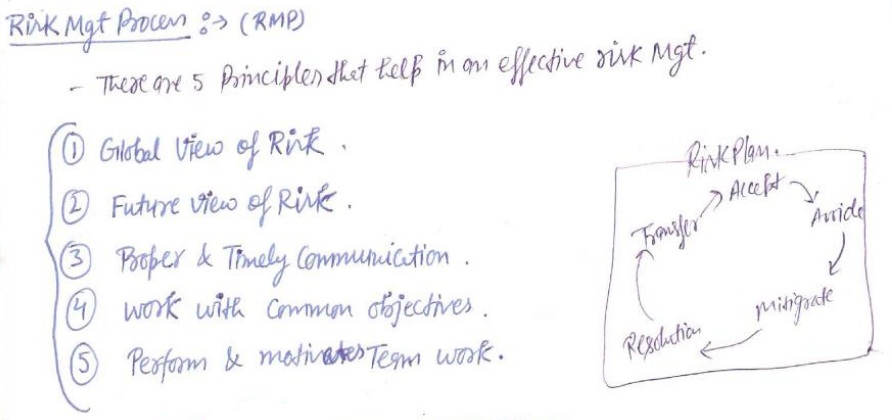 Risk Mgt Process :→ (RMP)
- There are 5 Principles that help in an effective risk Mgt.
① Global View of Risk .
② Future view of Risk .
③ Proper & Timely Communication .
④ work with Common objectives .
⑤ Perform & motivates Team work .
Risk Plan .
Accept
Avoide
Mitigrate
Resolution
Transfer